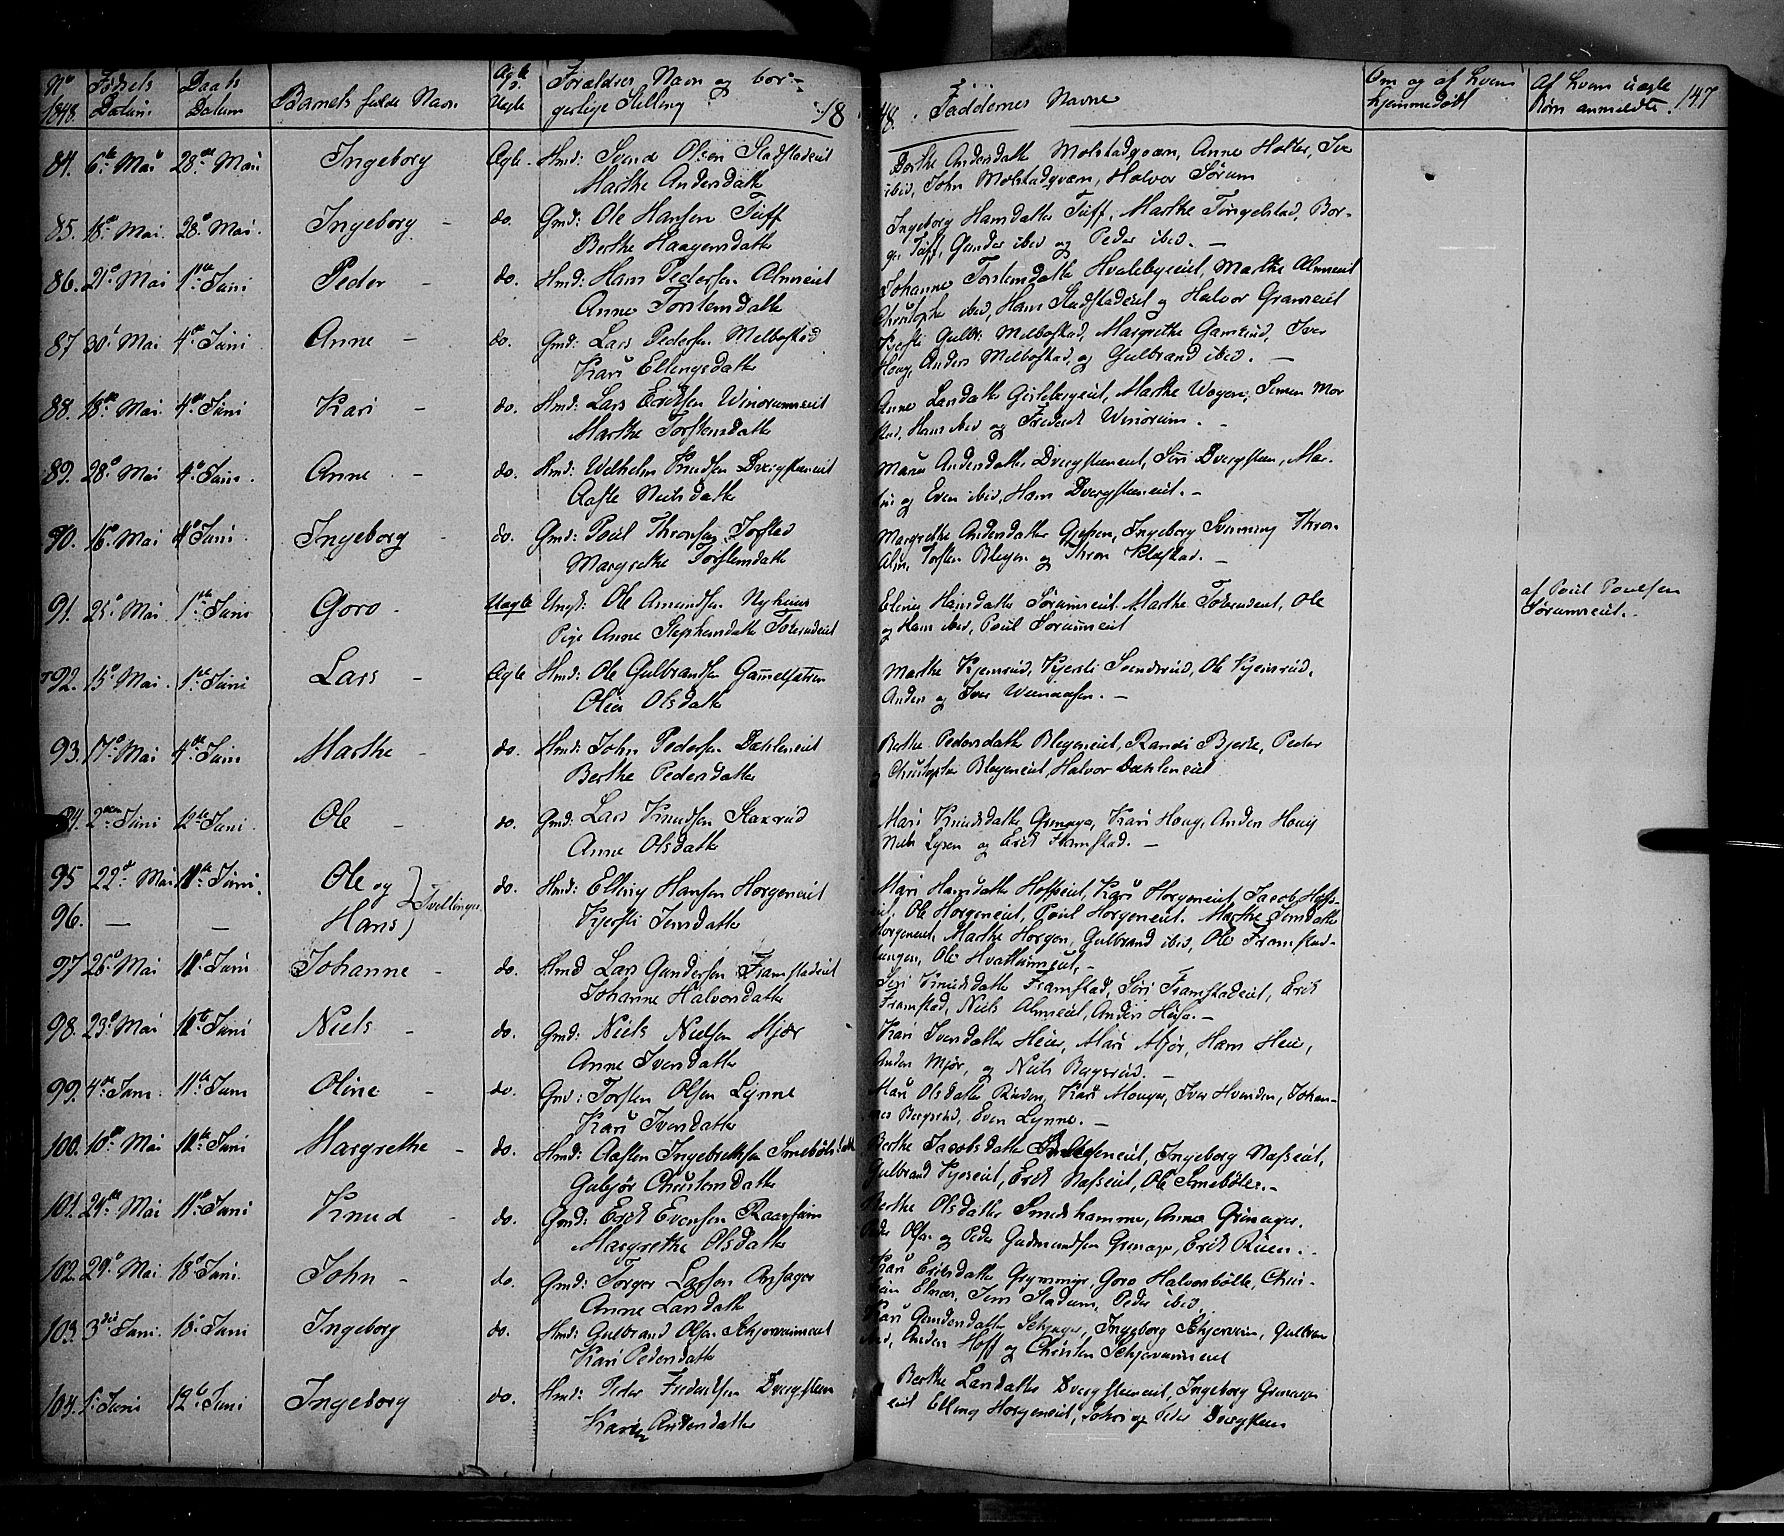 No 1848. Fødsels Datum Daabs Datum Barnets fulde Navn Ægte o. Uegte Forældres Navn og bor-
gerlige Stilling 18
48. Faddernes Navne Om og af hvem hjemmedøbt Af hvem uægte Børn anmeldte. 147
84. 6te Mai 28de Mai Ingeborg Ægte Hmd: Svend Olsen Stadstadeiet
Marthe Andersdatter
Berthe Andersdatter Molstadqvern, Anne Holter, Iver
ibid, John Molstadqvern, Halvor Sørum
85. 18de Mai. 28de Mai. Ingeborg - do. Gmd: Ole Hansen Tuff
Berthe Haagensdatter
Ingeborg Hansdatter Tuff, Marthe Tingelstad, Bor-
ger Tuff, Gunder ibid og Peder ibid. -
86. 21de Mai 1ste Juni Peder - do. Hmd: Hans Pedersen Almseiet
Anne Torstensdatter
Johanne Torstensdatter Hvalebyeiet, Marthe Almseiet
Christopher ibid, Hans Stadstadeiet og Halvor Granseiet
87 30. Mai 4de Juni Anne - do. Gmd: Lars Pedersen Melbostad
Kari Ellingsdatter
Kjersti Gulbr: Melbostad, Margrethe Gamkind, Iver
Houg, Anders Melbostad, og Gulbrand ibid. -
88. 18de Mai. 4de Juni Kari - do. Hmd: Lars Eriksen Winorumseiet
Marthe Torstensdatter
Anne Larsdatter Gislebergeiet, Marthe Wogen, Simen Mor
stad, Hans ibid og Frederik Winorum. -
89. 28de Mai 4de Juni. Anne - do. Hmd: Wilhelm Knudsen Dvergsteneiet
Aaste Nielsdatter
Maria Andersdatter Dvergsteneiet, Siri Dvergsten, Mar-
tin og Even ibid, Hans Dvergsteneiet. -
90. 16de Mai 4de Juni. Ingeborg - do. Gmd: Poul Thronsen Jorstad
Margrethe Torstensdatter
Margrethe Andersdatter Gjefsen, Ingeborg Svinning Thron
Alm, Torsten Blegen og Thron Klæstad. -
91. 25de Mai 1ste Juni Goro - Uægte Ungk: Ole Amundsen Nyhuus
Pige Anne Stephensdatter Toverudeiet
Eline Hansdatter Sørumseiet Marthe Toverudeiet, Ole
og Hans ibid, Poul Sørumseiet
af Poul Poulsen
Sørumseiet. -
92. 15de Mai. 1ste Juni Lars - Ægte Hmd: Ole Gulbrandsen Gammelsæteren
Olia Olsdatter
Marthe Kjemsrud, Kjersti Svendsrud, Ole Kjemsrud,
Anders og Iver Weenaasen. -
93. 17de Mai 4de Juni Marthe - do. Hmd: John Pedersen Dæhleneiet
Berthe Pedersdatter
Berthe Pedersdatter Blegeneiet, Randi Bjerke, Peder
og Christopher Blegeneiet, Halvor Dæhleneiet
94. 2den Juni 12te Juni. Ole - do. Gmd: Lars Knudsen Staxrud
Anne Olsdatter
Mari Knudsdatter Grinager, Kari Houg, Anders Houg
Niels Lysen og Erik Framstad. -
95 22de Mai 11te Juni. Ole og } Tvillinger. do. Hmd: Elling Hansen Horgeneiet
96. - - Hans } Kjersti Jensdatter
Mari Hansdatter Hoffseiet, Kari Horgeneiet, Jacob Hoffs-
eiet, Ole Horgeneiet, Poul Horgeneiet. Marthe Jensdatter
Horgeneiet, Marthe Horgen, Gulbrand ibid, Ole Framstad-
hungen, Ole Hvattumseiet. -
97 26de Mai 11te Juni Johanne - do. Hmd Lars Gundersen Framstadeiet
Johanne Halvorsdatter
Siri Knudsdatter Framstad, Siri Framstadeiet, Erik
Framstad, Niels Almseiet, Anders Husa. -
98. 23de Mai 11te Juni Niels - do. Gmd: Niels Nielsen Mjør
Anne Iversdatter
Kari Iversdatter Heier, Mari Mjør, Hans Heier,
Anders Mjør, og Niels Bægsrud. -
99. 4de Juni. 11te Juni Oline - do. Gmd: Torsten Olsen Lynne
Kari Iversdatter
Mari Olsdatter Ruden, Kari Monger, Iver Hvinden, Johan-
nes Bergsrud, Even Lynne. -
100. 10de Mai 11te Juni Margrethe - do. Hmd: Aasten Ingebretsen Smebølseiet
Gubjør Christensdatter
Berthe Jacobsdatter Blegeneiet, Ingeborg Næsseiet,
Gulbrand Kjoseiet, Erik Næsseiet, Ole Smebølen. -
101. 24de Mai 11te Juni Knud - do. Gmd: Erik Evensen Raassum
Margrethe Olsdatter
Berthe Olsdatter Smedshammer, Anne Grinager.
Peder Olsen og Peder Gudmundsen Grinager, Erik Ruen. -
102. 29de Mai 18de Juni. John - do. Gmd: Torger Larsen Opsager
Anne Larsdatter
Kari Eriksdatter Grymmyr, Goro Halvorsbølle, Chri-
stian Elnæs, Jens Stadum, Peder ibid.
103. 3die Juni. 18de Juni Ingeborg do. Hmd: Gulbrand Olsen Schjerveimseiet
Kari Pedersdatter
Kari Gundersdatter Schjager, Ingeborg Schjerveim, Gulbran
ibid, Anders Hoff og Christen Schjerveimseiet
104. 1. Juni 12te Juni Ingeborg do. Hmd: Peder Fredriksen Dvergsteen
Karen Andersdatter
Berthe Larsdatter Dvergsteneiet, Ingeborg Grinager
eiet Elling Horgeneiet, John og Peder Dvergsteen